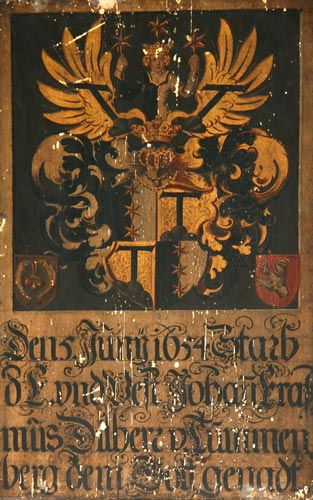 Den 5. Junii 1654 Starb
d E. vnd Vest Johan Eraß
mus Dilherr v. Tummen
berg dem Gott genadt